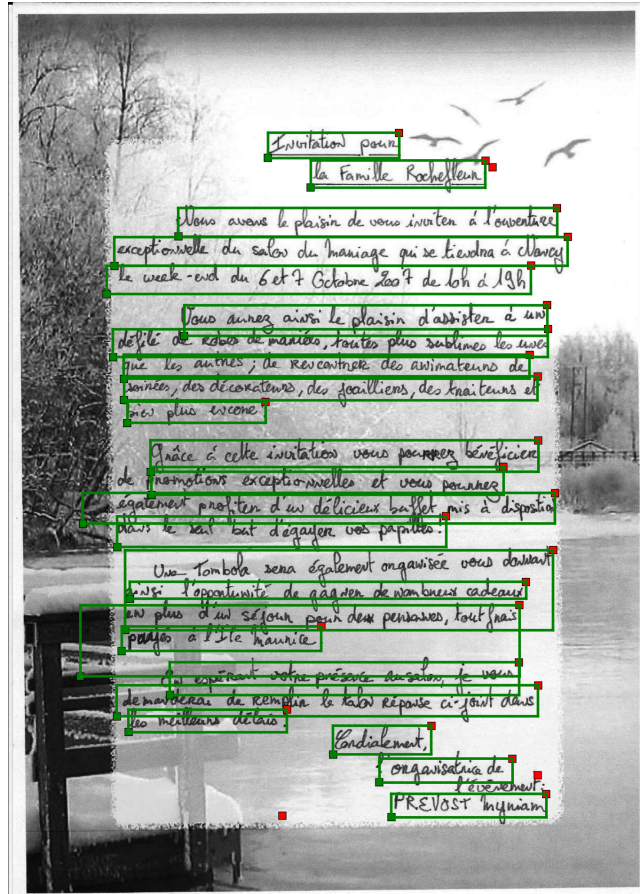 Invitation pour
la Famille Rochefleur
Nous avons le plaisir de vous inviter à l'ouverture
exceptionnelle du salon du mariage qui se tiendra à Nancy
le week-end du 6 et 7 Octobre 2007 de 10h à 19h
Vous aurez ainsi le plaisir d'assister à un
défilé de robes de mariées, toutes plus sublimes les unes
que les autres ; de rencontrer des animateurs de
soirées, des décorateurs, des joailliers, des traiteurs et
bien plus encore
Grâce à cette invitation vous pourrez bénéficier
de promotions exceptionnelles et vous pourrez
également profiter d'un délicieux buffet mis à disposition
dans le seul but d'égayer vos papilles.
Une Tombola sera également organisée vous donnant
ainsi l'opportunité de gagner de nombreux cadeaux
en plus d'un séjour pour deux personnes, tout frais
payés à l'Ile Maurice
En espérant votre présence au salon, je vous
demanderai de remplir le talon réponse ci-joint dans
les meilleurs délais
Cordialement,
l'organisatrice de
l'évènement:
PREVOST Myriam